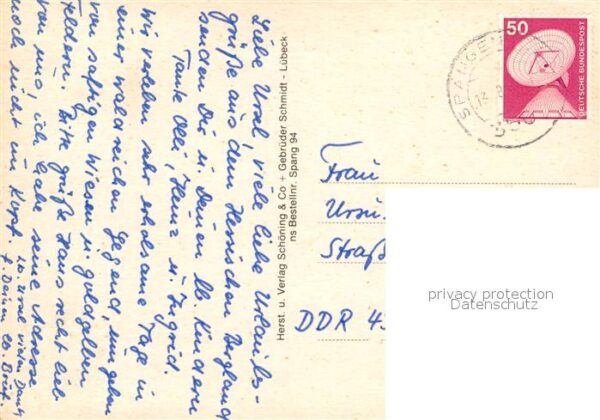 Liebe Ursel, viele liebe Urlaubs-
grüße aus dem Hessischen Bergland
senden Dir u. Deinen lb. Kindern
Tante Olli, Heinz u. Ingrid.
Wir erleben sehr erholsame Tage in
einer waldreichen Gegend, umgeben
von saftigen Wiesen u. goldgelben
Feldern. Bitte grüße Hans recht lieb
von uns, ich habe seine Adresse
noch nicht im Kopf.
Lb. Ursel vielen Dank
f. Deinen lb. Brief.
Herst. u. Verlag Schöning & Co + Gebrüder Schmidt - Lübeck
ns Bestellnr. Spang 94
50
DEUTSCHE BUNDESPOST
SPANGE
13
Frau
Ursu
Straß
DDR 43
privacy protection
Datenschutz